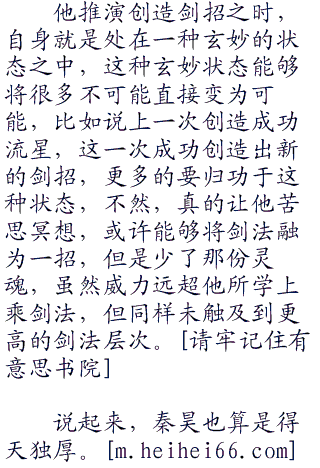 他推演创造剑招之时，
自身就是处在一种玄妙的状
态之中，这种玄妙状态能够
将很多不可能直接变为可
能，比如说上一次创造成功
流星，这一次成功创造出新
的剑招，更多的要归功于这
种状态，不然，真的让他苦
思冥想，或许能够将剑法融
为一招，但是少了那份灵
魂，虽然威力远超他所学上
乘剑法，但同样未触及到更
高的剑法层次。[请牢记住有
意思书院]
说起来，秦昊也算是得
天独厚。[m.heihei66.com]